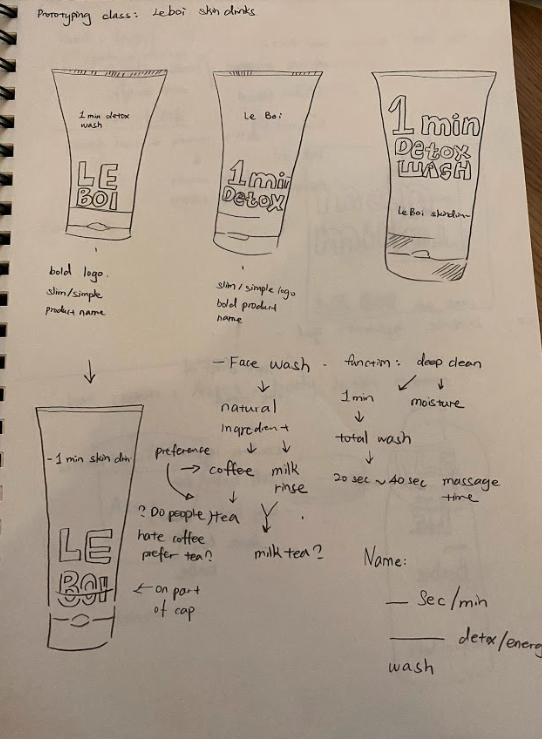 Prototyping class: Le boi skin drinks
1 min detox
wash
LE
BOI
Le Boi
1 min
Detox
1 min
Detox
WASH
Le Boi
bold logo.
slim/simple
product name
slim/simple logo
bold product
name
- Face wash - function: deep clean
natural
ingredient
1min
moisture
total wash
20 sec ~ 40 sec massage
time
preference
coffee milk
rinse
tea
? Do people
hate coffee
prefer tea?
milk tea?
- 1 min skin
LE
BOI
on part
of cap
Name:
__ Sec/min
___ detox/energ
wash